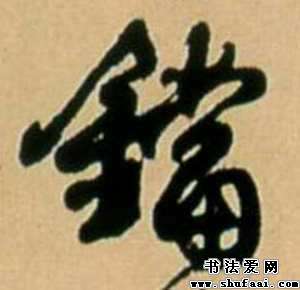 鐺
书法爱网
www.shufaai.com